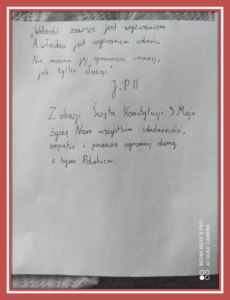 „Wolność zawsze jest wyzwaniem
A władza jest wyzwaniem wolności
Nie można jej sprawować inaczej,
jak tylko służąc"
J.P II
Z okazji Święta Konstytucji 3 Maja
życzę Nam wszystkim solidarności,
empatii i poczucia ogromnej dumy
z bycia Polakiem.
REDMI NOTE 8 PRO
AI QUAD CAMERA